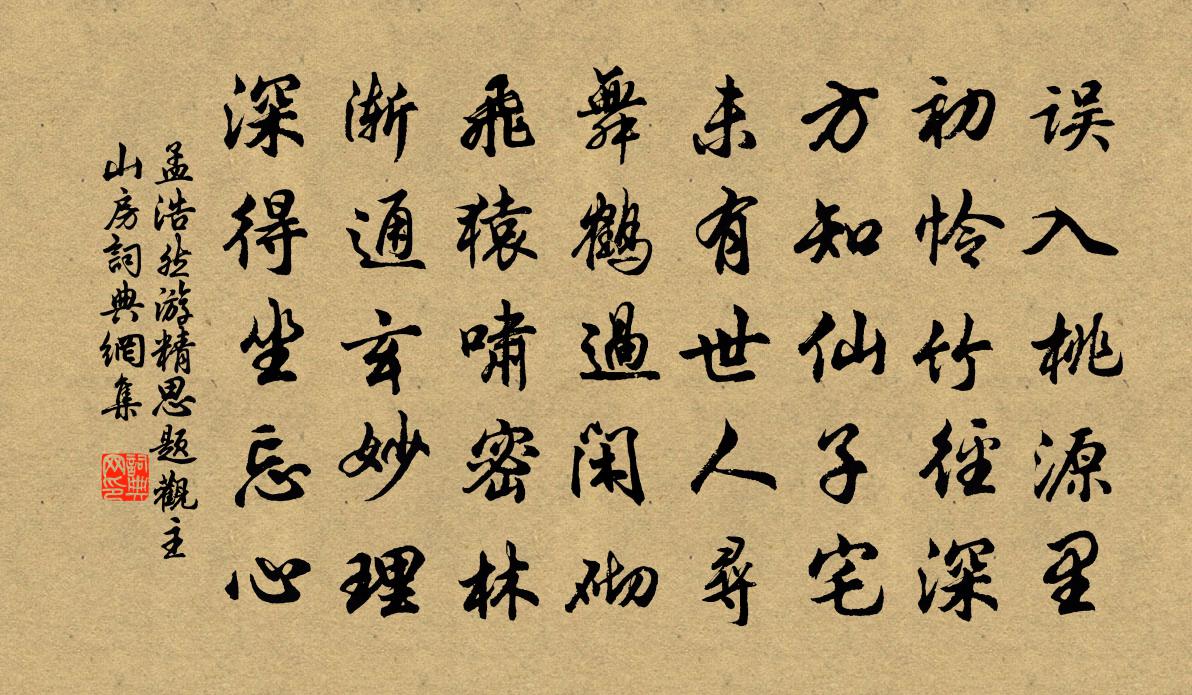 误入桃源里
初怜竹径深
方知仙子宅
未有世人寻
舞鹤過闲砌
飛猿啸密林
渐通玄妙理
深得坐忘心
孟浩然游精思題觀主
山房詞典網集
詞典网印